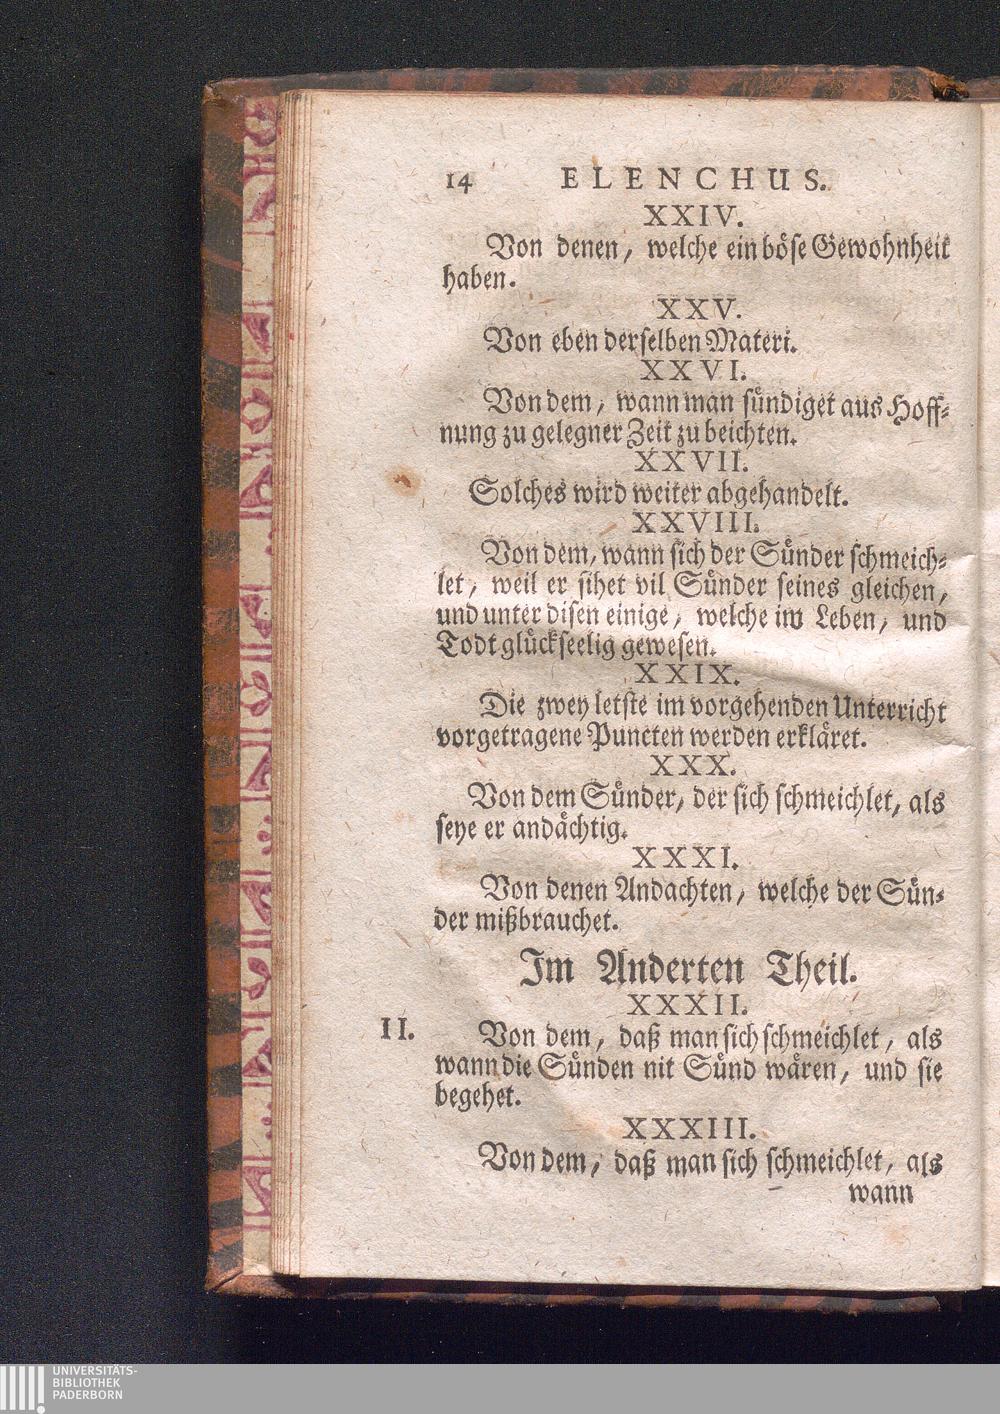 14 ELENCHUS.
XXIV.
Von denen, welche ein böse Gewohnheit
haben.
XXV.
Von eben derselben Materi.
XXVI.
Von dem, wann man sündiget aus Hoff-
nung zu gelegner Zeit zu beichten.
XXVII.
Solches wird weiter abgehandelt.
XXVIII.
Von dem, wann sich der Sünder schmeich-
let, weil er sihet vil Sünder seines gleichen,
und unter disen einige, welche im Leben, und
Todt glückseelig gewesen.
XXIX.
Die zwey letste im vorgehenden Unterricht
vorgetragene Puncten werden erkläret.
XXX.
Von dem Sünder, der sich schmeichlet, als
seye er andächtig.
XXXI.
Von denen Andachten, welche der Sün-
der mißbrauchet.
Im Anderten Theil.
XXXII.
II. Von dem, daß man sich schmeichlet, als
wann die Sünden nit Sünd wären, und sie
begehet.
XXXIII.
Von dem, daß man sich schmeichlet, als
wann
UNIVERSITÄTS-
BIBLIOTHEK
PADERBORN